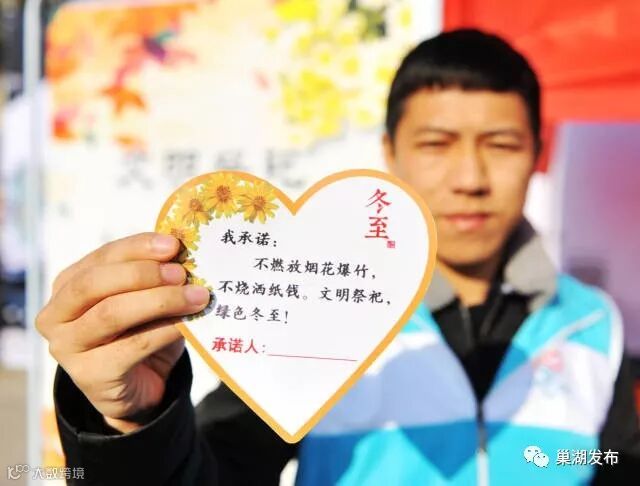 文明祭祀
冬至
我承诺：
不燃放烟花爆竹，
不烧洒纸钱。文明祭祀，
绿色冬至！
承诺人：
大数跨境
巢湖发布